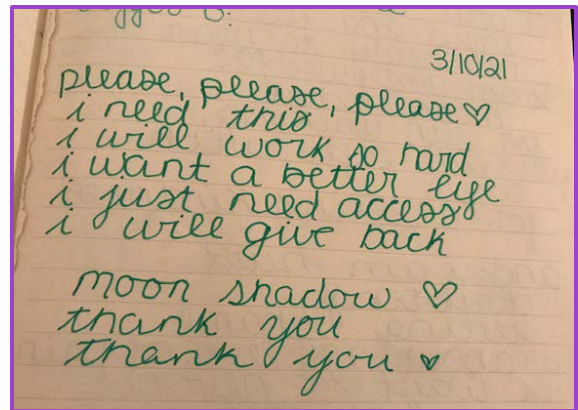 3/10/21
please, please, please♡
i need this
i will work so hard
i want a better life
i just need access
i will give back
moon shadow ♡
thank you
thank you ♥